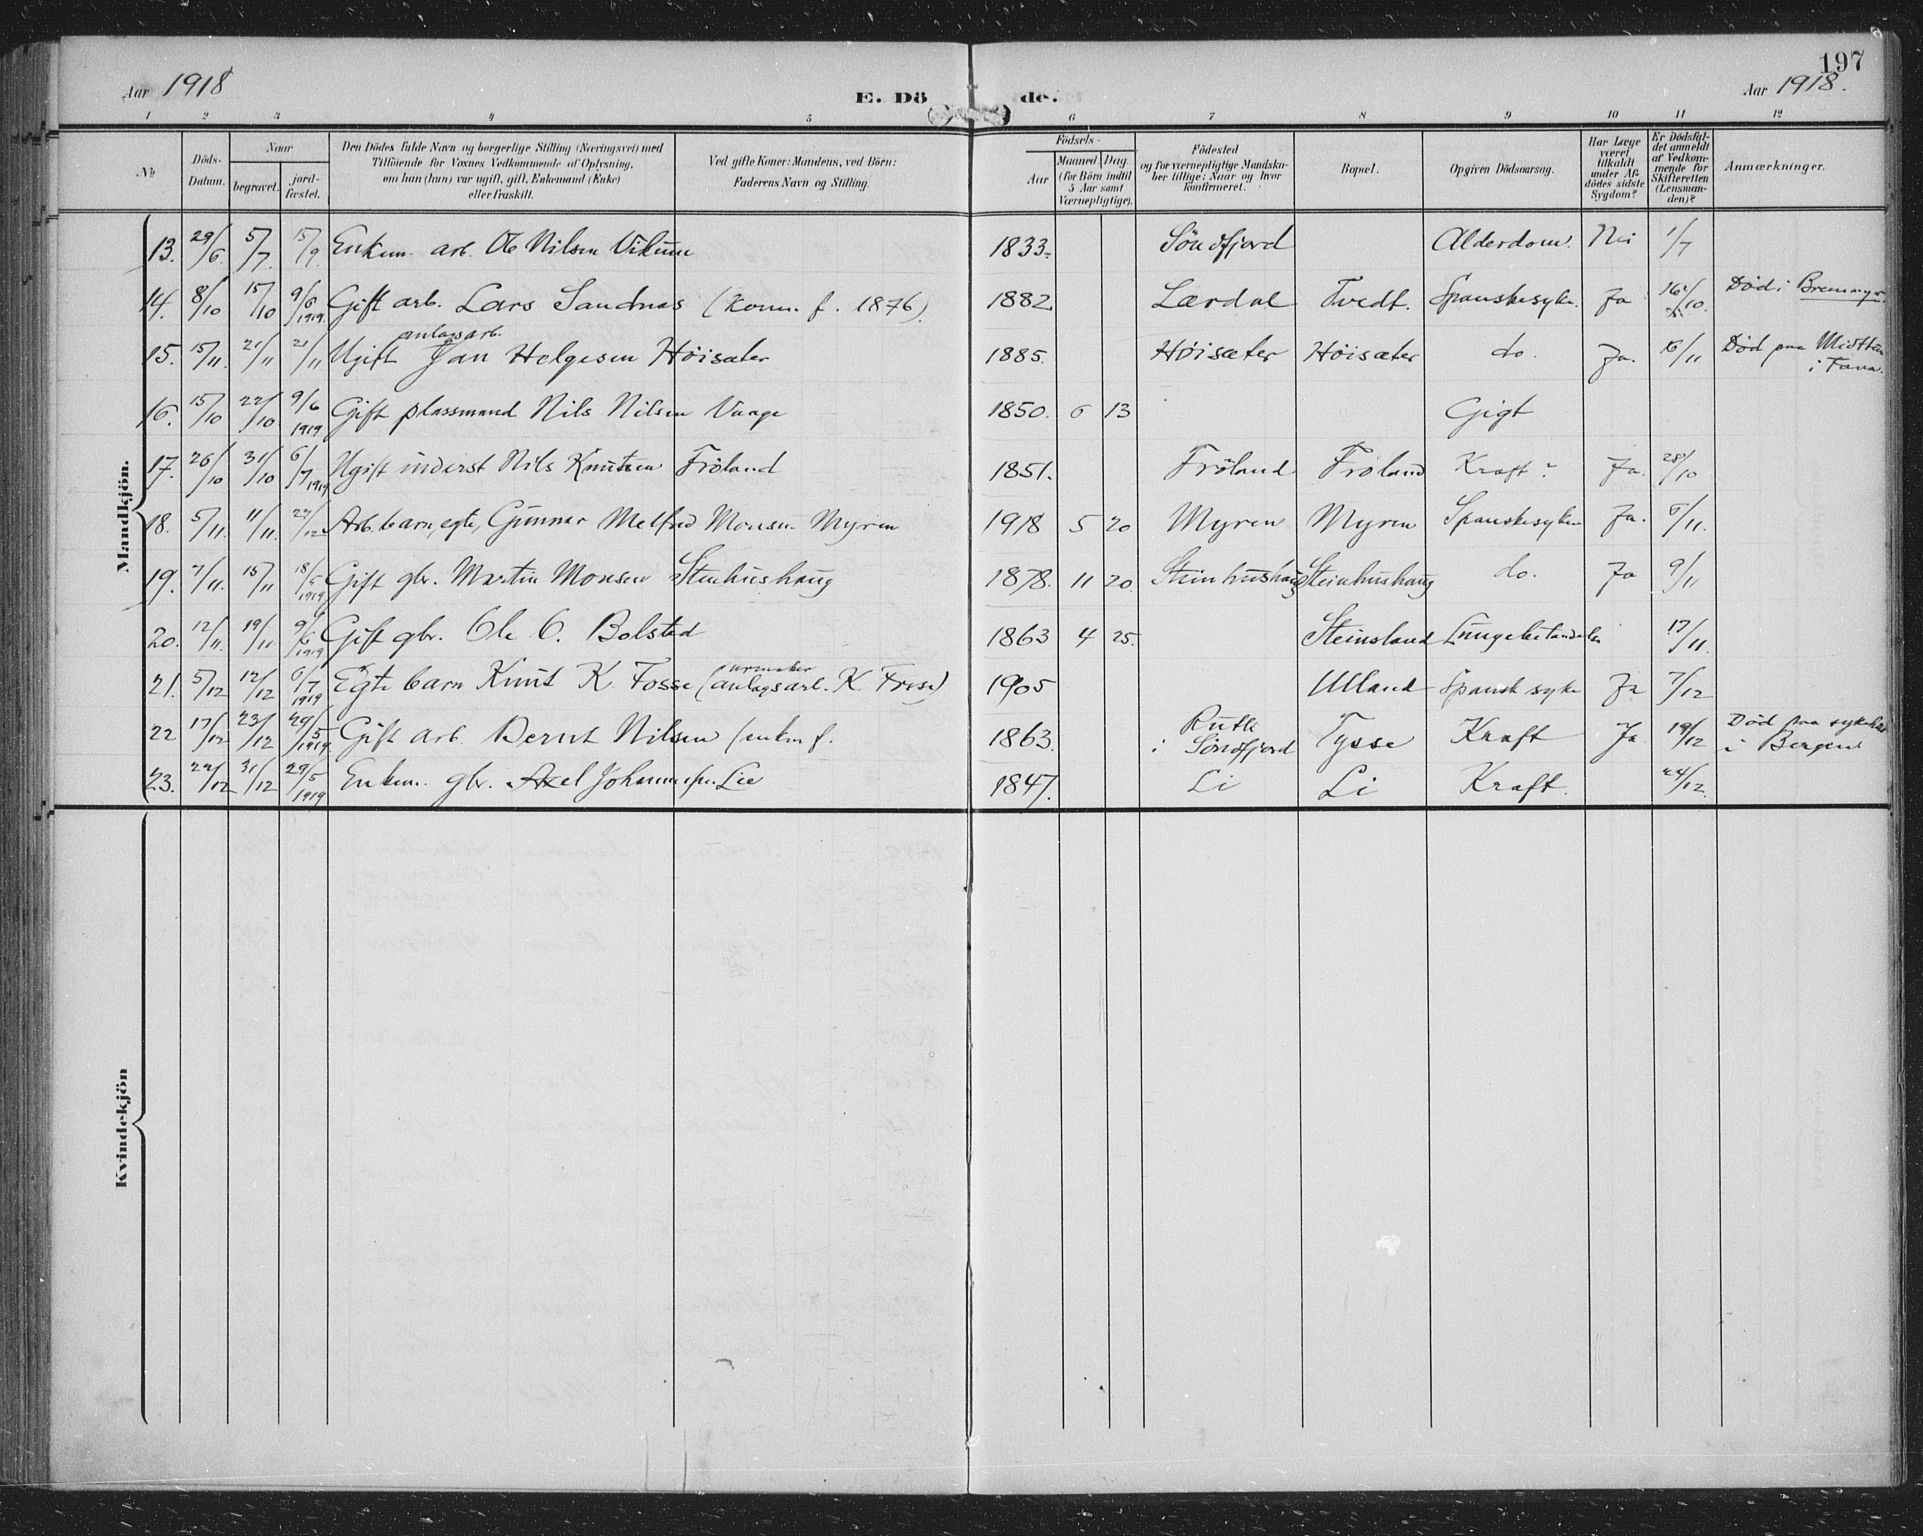 197
Aar 1918
E. Dö
de.
Aar 1918.
1 2 3 4 5 6 7 8 9 10 11 12
No
Döds-Datum.
Naar
begravet.
jord-fæstet.
Den Dödes fulde Navn og borgerlige Stilling (Næringsvei) med
Tilföiende for Voxnes Vedkommende af Oplysning,
om han (hun) var ugift, gift, Enkemand (Enke)
eller fraskilt.
Ved gifte Koner: Mandens, ved Börn:
Faderens Navn og Stilling.
Födsels-
Aar
Maaned Dag
(for Börn indtil
5 Aar samt
Værnepligtige).
Födested
og for værnepligtige Mandska-
ber tillige: Naar og hvor
konfirmeret.
Bopæl.
Opgiven Dödsaarsag.
Har Læge
været
tilkaldt
under Af-
dödes sidste
Sygdom?
Er Dödsfal-
det anmeldt
af Vedkom-
mende for
Skifteretten
(Lensman-
den)?
Anmærkninger.
Mandkjön.
13. 29/6 5/7 15/9 Enkem. arb. Ole Nilsen Vikum 1833. Söndfjord Alderdom. Nei 1/7
14. 8/10 15/10 9/6 1919 Gift arb. Lars Sandnas (kom. f. 1876) 1882 Lærdal Tvedt. Spanskesyke. Ja 16/10. Död i
anlagsarb.
15. 15/11. 21/11 21/11 Ugift Jan Helgesen Höisæter 1885. Höisæter Höisæter do. Ja. 16/11 Död paa Midttun
i Fana.
16. 15/10 22/10 9/6 1919 Gift plassmand Nils Nilsen Vaage 1850. 6 13 Gigt
17. 26/10 31/10 6/7 1919 Ugift inderst Nils Knutsen Fröland 1851. Fröland Fröland Kraft? Ja. 28/10
18. 5/11. 11/11. 27/12 Arb. barn, egte, Gunnar Melfred Monsen Myren 1918 5 20 Myren Myren Spanskesyken Ja. 6/11.
19. 7/11. 15/11 18/5 1919 Gift gbr. Martin Monsen Steinhushaug 1878. 11 20. Steinhushaug Steinhushaug do. Ja 9/11
20. 12/11. 19/11. 9/6 1919 Gift gbr. Ole O. Bolstad 1863 4 25. Steinsland Lungebetændelse 17/11.
urmaker
21. 5/12 12/12 6/7 1919 Egte barn Knut K. Fosse (anlagsarb. K. Fosse) 1905 Ulland Spansk syke Ja 7/12
22 17/12 23/12 29/5 1919. Gift arb. Bernt Nilsen 1863. i Söndfjord Tysse Kraft Ja 19/12 Död paa sykehus
i Bergen
23. 22/12 31/12 29/5 1919 Enkem. gbr. Axel Johannessen Lie 1847. Li Li Kraft. 24/12.
Kvindekjön